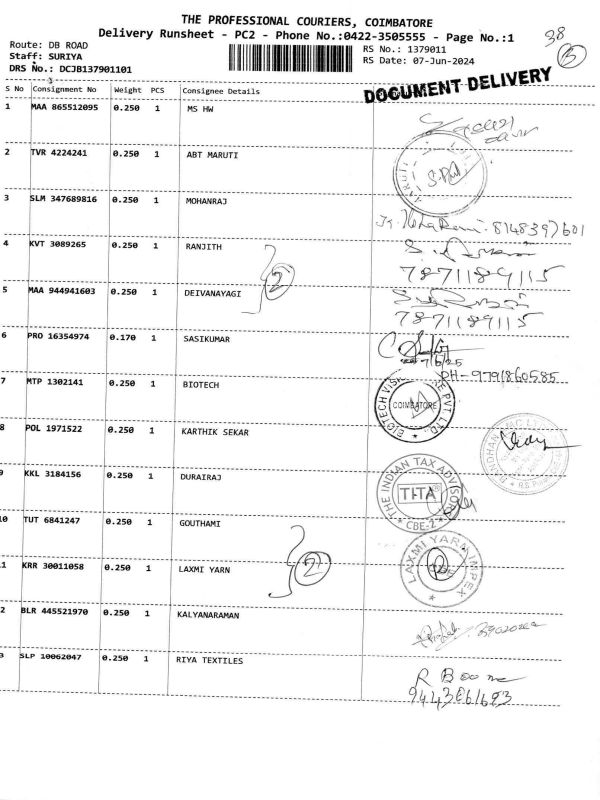 THE PROFESSIONAL COURIERS, COIMBATORE
Delivery Runsheet - PC2 - Phone No.:0422-3505555 - Page No.:1
38
Route: DB ROAD
RS No.: 1379011
5
Staff: SURIYA
RS Date: 07-Jun-2024
DRS No.: DCJB137901101
DOCUMENT DELIVERY
S No Consignment No Weight PCS Consignee Details
1 MAA 865512095 0.250 1 MS HW
2 TVR 4224241 0.250 1 ABT MARUTI
MARUTI
3 SLM 347689816 0.250 1 MOHANRAJ
8148397601
4 KVT 3089265 0.250 1 RANJITH
7871189115
2
5 MAA 944941603 0.250 1 DEIVANAYAGI
7871189115
6 PRO 16354974 0.170 1 SASIKUMAR
PH-9791860585
7 MTP 1302141 0.250 1 BIOTECH
BIOTECH VIS
E PVT LTD.
COIMBATORE
8 POL 1971522 0.250 1 KARTHIK SEKAR
9 KKL 3184156 0.250 1 DURAIRAJ
THE INDIAN TAX ADVISOR
TITA
CBE-2
10 TUT 6841247 0.250 1 GOUTHAMI
2
11 KRR 30011058 0.250 1 LAXMI YARN
LAXMI YARN IMPEX
2 BLR 445521970 0.250 1 KALYANARAMAN
3 SLP 10062047 0.250 1 RIYA TEXTILES
R Boo